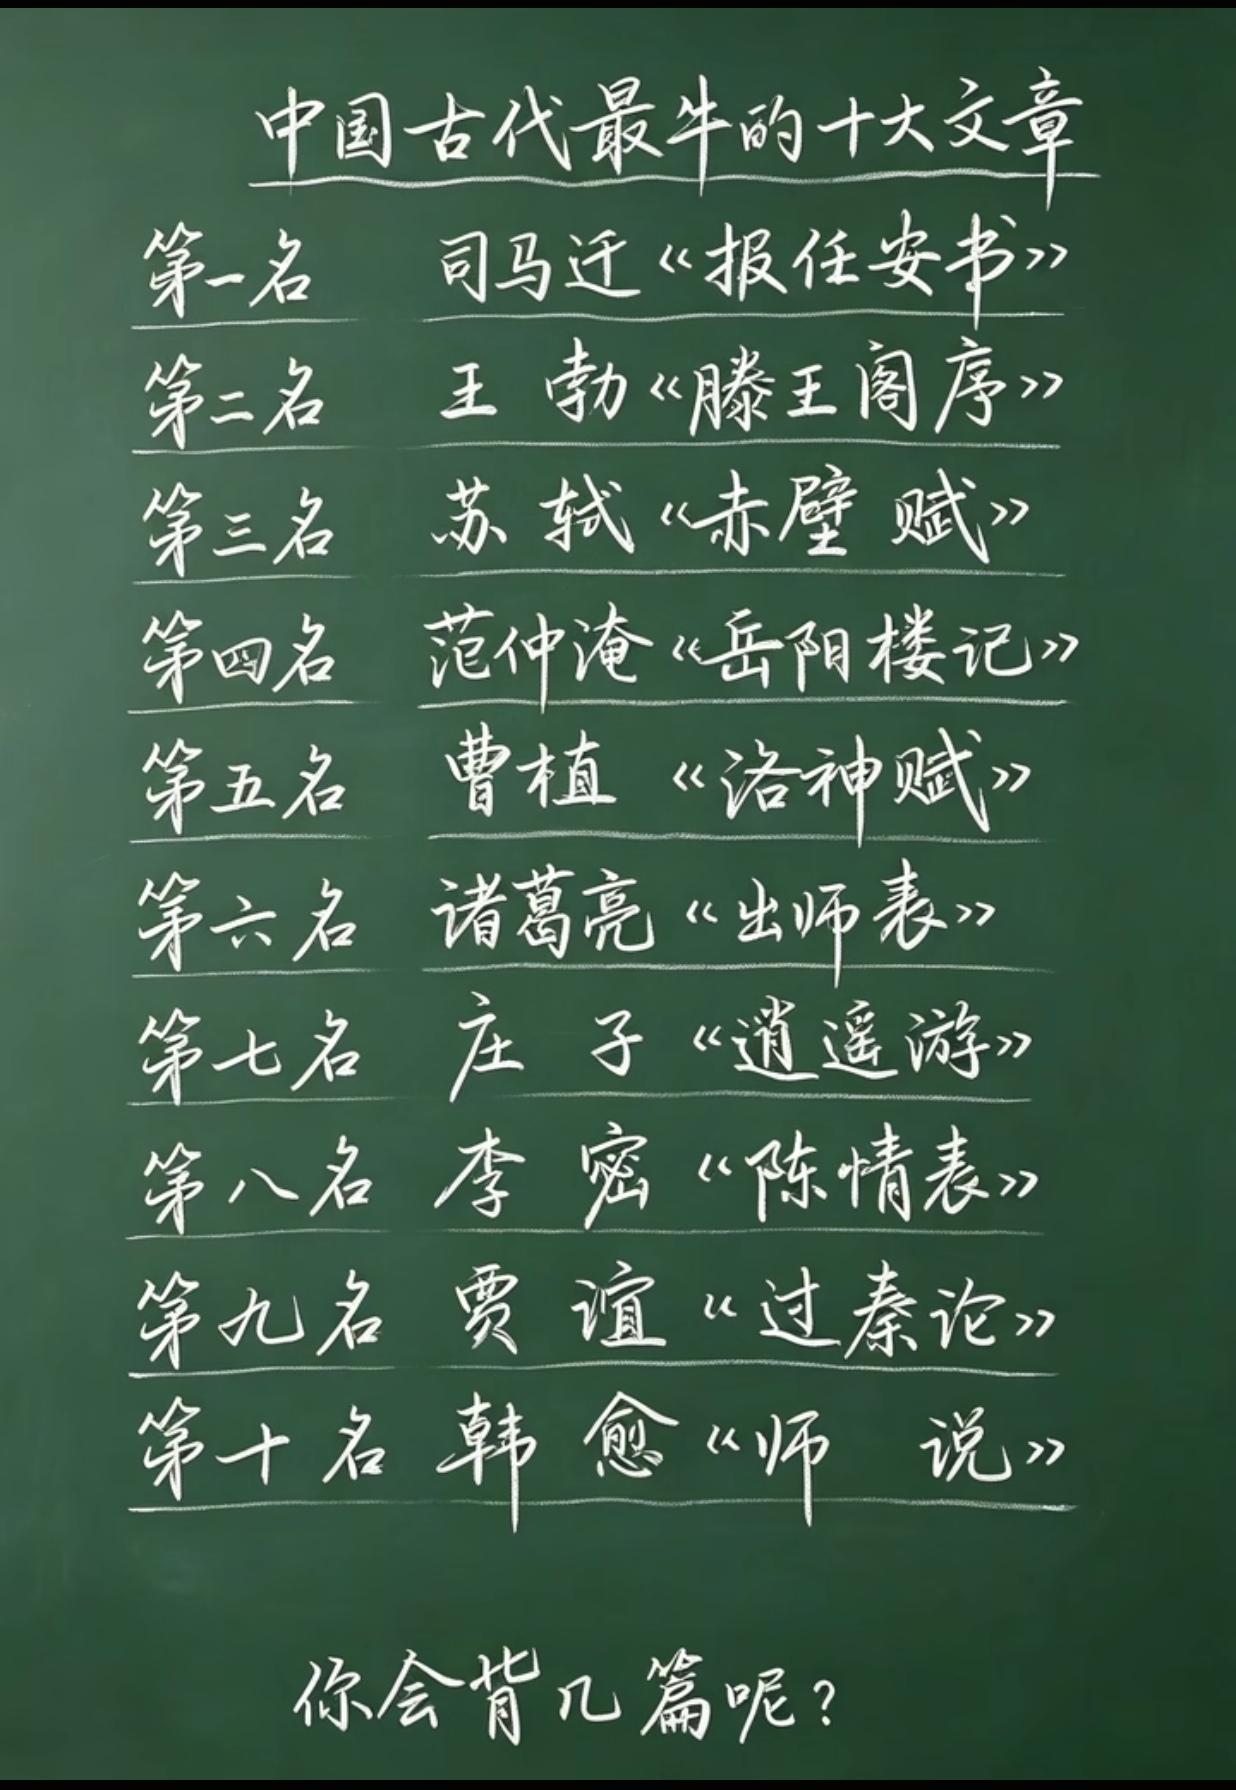 中国古代最牛的十大文章
第一名 司马迁《报任安书》
第二名 王勃《滕王阁序》
第三名 苏轼《赤壁赋》
第四名 范仲淹《岳阳楼记》
第五名 曹植《洛神赋》
第六名 诸葛亮《出师表》
第七名 庄子《逍遥游》
第八名 李密《陈情表》
第九名 贾谊《过秦论》
第十名 韩愈《师说》
你会背几篇呢？